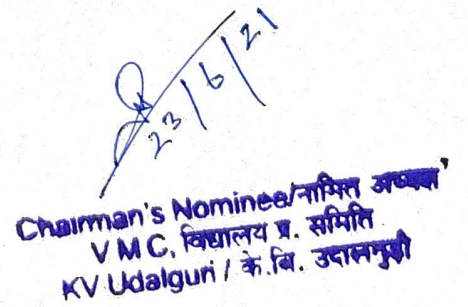 23/6/21
Chairman's Nominee/नामित अध्यक्ष
V M C, विद्यालय प्र. समिति
KV Udalguri / के.वि. उदालगुड़ी